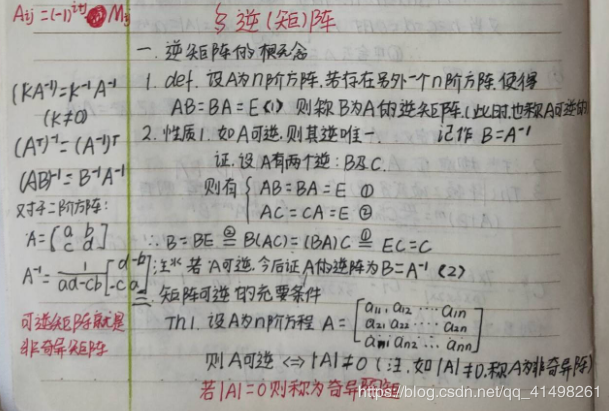 Aij = (-1)^i+j Mij
§ 逆(矩)阵
一. 逆矩阵的概念
1. def. 设A为n阶方阵. 若存在另外一个n阶方阵, 使得
AB = BA = E (1) 则称B为A的逆矩阵. (此时, 也称A可逆的)
2. 性质1. 如A可逆, 则其逆唯一. 记作 B = A⁻¹
证. 设A有两个逆: B及C.
则有 { AB = BA = E ①
AC = CA = E ②
∴ B = BE ②= B(AC) = (BA)C ①= EC = C
注※ 若A可逆. 今后证A的逆阵为B = A⁻¹ (2)
二. 矩阵可逆的充要条件
Th1. 设A为n阶方程 A = [ a11, a12 ... a1n
a21 a22 ... a2n
an1 an2 ... ann ]
则A可逆 <=> |A| ≠ 0 (注. 如|A| ≠ 0. 称A为非奇异阵)
若|A| = 0 则称为奇异
(KA⁻¹) = K⁻¹A⁻¹
(K≠0)
(Aᵀ)⁻¹ = (A⁻¹)ᵀ
(AB)⁻¹ = B⁻¹A⁻¹
对于二阶方阵:
A = [ a b
c d ]
A⁻¹ = 1/(ad-cb) [ d -b
-c a ]
可逆矩阵就是
非奇异矩阵
https://blog.csdn.net/qq_41498261